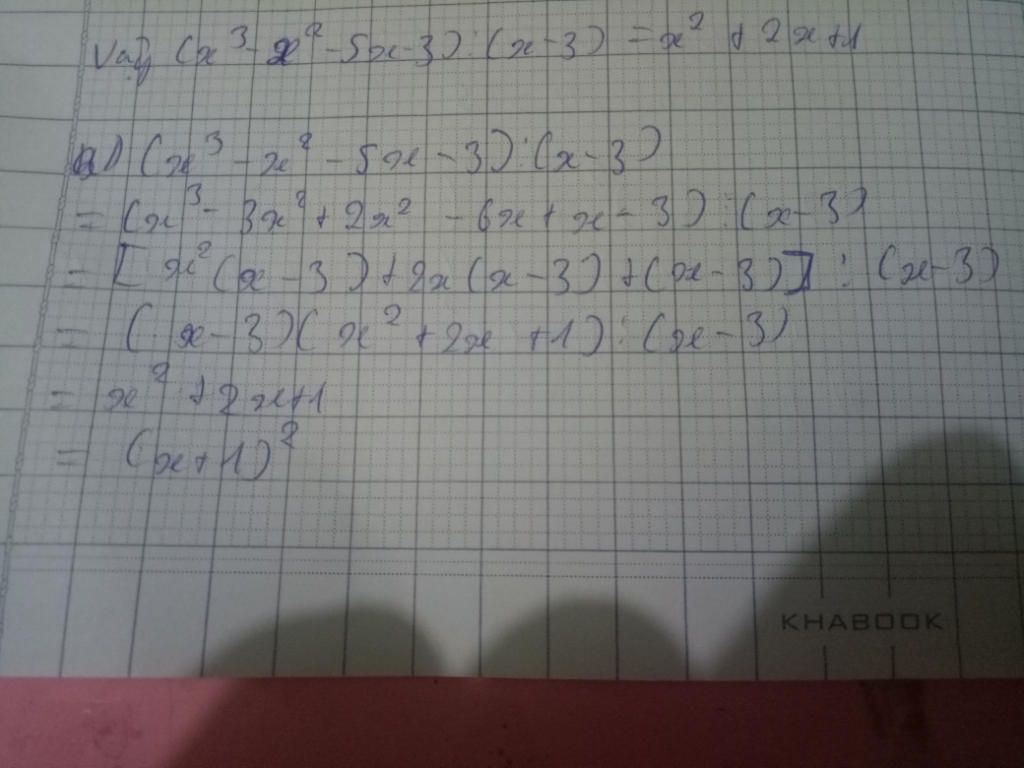 Vậy (x³ - x² - 5x - 3) : (x - 3) = x² + 2x + 1
a) (x³ - x² - 5x - 3) : (x - 3)
= (x³ - 3x² + 2x² - 6x + x - 3) : (x - 3)
= [x² (x - 3) + 2x (x - 3) + (x - 3)] : (x - 3)
= (x - 3)(x² + 2x + 1) : (x - 3)
= x² + 2x + 1
= (x + 1)²
KHABOOK